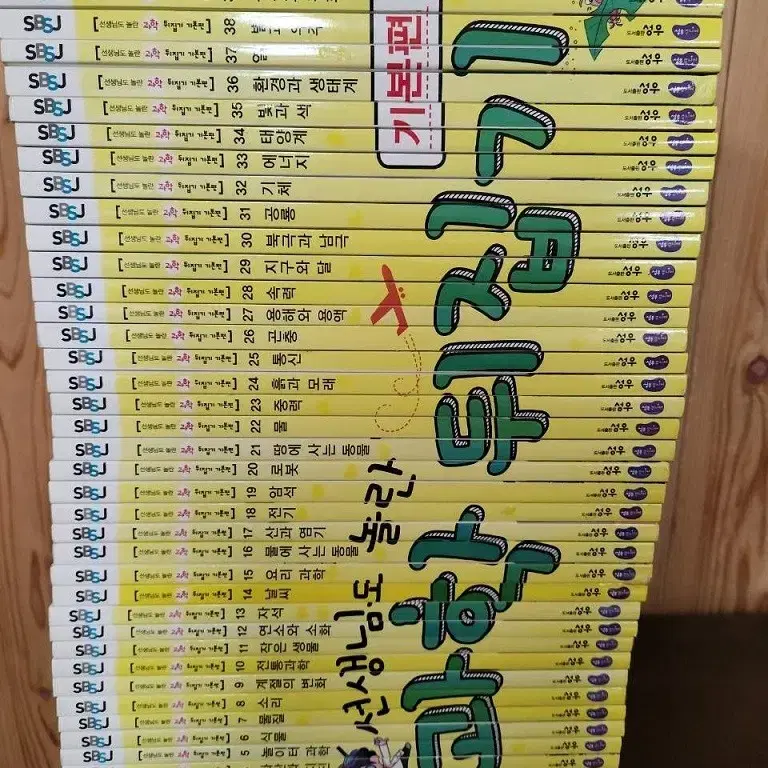 선생님도 놀란
과학 뒤집기
기본편
SBSJ [선생님도 놀란 과학 뒤집기 기본편] 38 도서출판 성우
SBSJ [선생님도 놀란 과학 뒤집기 기본편] 37 도서출판 성우
SBSJ [선생님도 놀란 과학 뒤집기 기본편] 36 환경과 생태계 도서출판 성우
SBSJ [선생님도 놀란 과학 뒤집기 기본편] 35 빛과 색 도서출판 성우
SBSJ [선생님도 놀란 과학 뒤집기 기본편] 34 태양계 도서출판 성우
SBSJ [선생님도 놀란 과학 뒤집기 기본편] 33 에너지 도서출판 성우
SBSJ [선생님도 놀란 과학 뒤집기 기본편] 32 기체 도서출판 성우
SBSJ [선생님도 놀란 과학 뒤집기 기본편] 31 공룡 도서출판 성우
SBSJ [선생님도 놀란 과학 뒤집기 기본편] 30 북극과 남극 도서출판 성우
SBSJ [선생님도 놀란 과학 뒤집기 기본편] 29 지구와 달 도서출판 성우
SBSJ [선생님도 놀란 과학 뒤집기 기본편] 28 속력 도서출판 성우
SBSJ [선생님도 놀란 과학 뒤집기 기본편] 27 용해와 용액 도서출판 성우
SBSJ [선생님도 놀란 과학 뒤집기 기본편] 26 곤충 도서출판 성우
SBSJ [선생님도 놀란 과학 뒤집기 기본편] 25 통신 도서출판 성우
SBSJ [선생님도 놀란 과학 뒤집기 기본편] 24 흙과 모래 도서출판 성우
SBSJ [선생님도 놀란 과학 뒤집기 기본편] 23 중력 도서출판 성우
SBSJ [선생님도 놀란 과학 뒤집기 기본편] 22 물 도서출판 성우
SBSJ [선생님도 놀란 과학 뒤집기 기본편] 21 땅에 사는 동물 도서출판 성우
SBSJ [선생님도 놀란 과학 뒤집기 기본편] 20 로봇 도서출판 성우
SBSJ [선생님도 놀란 과학 뒤집기 기본편] 19 암석 도서출판 성우
SBSJ [선생님도 놀란 과학 뒤집기 기본편] 18 전기 도서출판 성우
SBSJ [선생님도 놀란 과학 뒤집기 기본편] 17 산과 염기 도서출판 성우
SBSJ [선생님도 놀란 과학 뒤집기 기본편] 16 물에 사는 동물 도서출판 성우
SBSJ [선생님도 놀란 과학 뒤집기 기본편] 15 요리 과학 도서출판 성우
SBSJ [선생님도 놀란 과학 뒤집기 기본편] 14 날씨 도서출판 성우
SBSJ [선생님도 놀란 과학 뒤집기 기본편] 13 자석 도서출판 성우
SBSJ [선생님도 놀란 과학 뒤집기 기본편] 12 연소와 소화 도서출판 성우
SBSJ [선생님도 놀란 과학 뒤집기 기본편] 11 작은 생물 도서출판 성우
SBSJ [선생님도 놀란 과학 뒤집기 기본편] 10 전통과학 도서출판 성우
SBSJ [선생님도 놀란 과학 뒤집기 기본편] 9 계절의 변화 도서출판 성우
SBSJ [선생님도 놀란 과학 뒤집기 기본편] 8 소리 도서출판 성우
SBSJ [선생님도 놀란 과학 뒤집기 기본편] 7 물질 도서출판 성우
SBSJ [선생님도 놀란 과학 뒤집기 기본편] 6 식물 도서출판 성우
SBSJ [선생님도 놀란 과학 뒤집기 기본편] 5 놀이터 과학 도서출판 성우